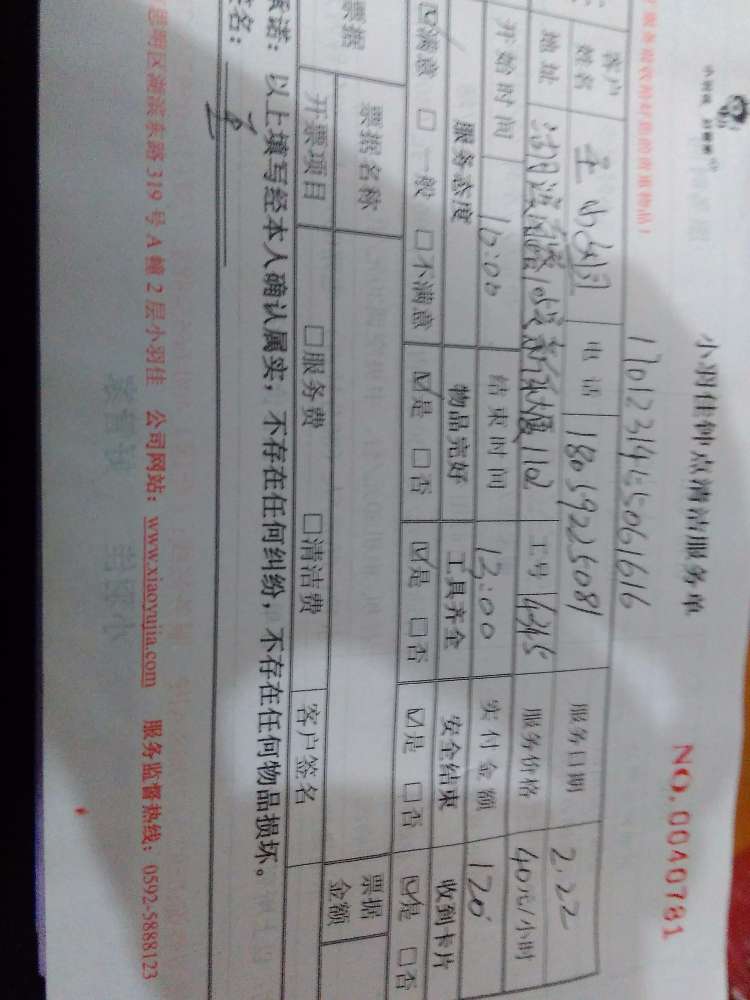 小羽佳钟点清洁服务单
NO.0040781
服务验收时好您的贵重物品!
客户
姓名 电话 18059225081 服务日期 2.22
地址 工号 4245 服务价格 40元/小时
开始时间 10:00 结束时间 12:00 实付金额 120
服务态度 物品完好 工具齐全 安全结束 收到卡片
☑满意 □一般 □不满意 ☑是 □否 ☑是 □否 ☑是 □否 ☑是 □否
票据 票据名称 票据
金额
开票项目 □服务费 □清洁费 客户签名
承诺:以上填写经本人确认属实;不存在任何纠纷,不存在任何物品损坏。
签名:
思明区湖滨东路319号A幢2层小羽佳 公司网站:www.xiaoyujia.com 服务监督热线:0592-5888123